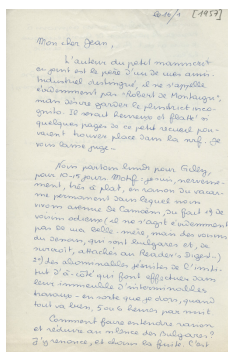 2010/1 [1957]
Mon cher Jean,
L'auteur du petit manuscrit
ci-joint est le père d'un de mes amis.
Industriel distingué, il ne s'appelle
évidemment pas "Robert de Montaigre",
mais désire garder le plus strict inco-
gnito. Il serait heureux et flatté si
quelques pages de ce petit recueil pou-
vaient trouver place dans la nrf. Je
vous laisse juge.
Nous partons lundi pour
pour 10-15 jours. Motif: je suis, nerveuse-
ment, très à plat, en raison du vacar-
me permanent dans lequel nous
vivons avenue de Camoëns, du fait 1° de
voisins odieux (il ne s'agit évidemment
pas de ma belle-mère, mais des voisins
du dessous, qui sont bulgares et,
paraît, attachés au Reader's Digest...)
2°) des abominables jésuites de l'insti-
tut d'à-côté qui font effectuer dans
leur immeuble d'interminables
travaux - en sorte que je dors, quand
tout va bien, 5 ou 6 heures par nuit.
Comment faire entendre raison
et réduire au silence des bulgares?
J'y renonce, et choisis la fuite. C'est